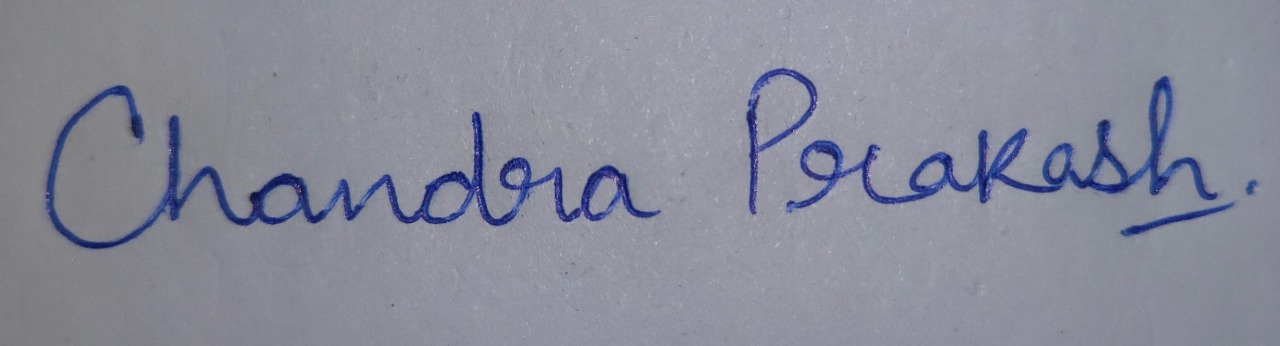 Chandra Prakash.